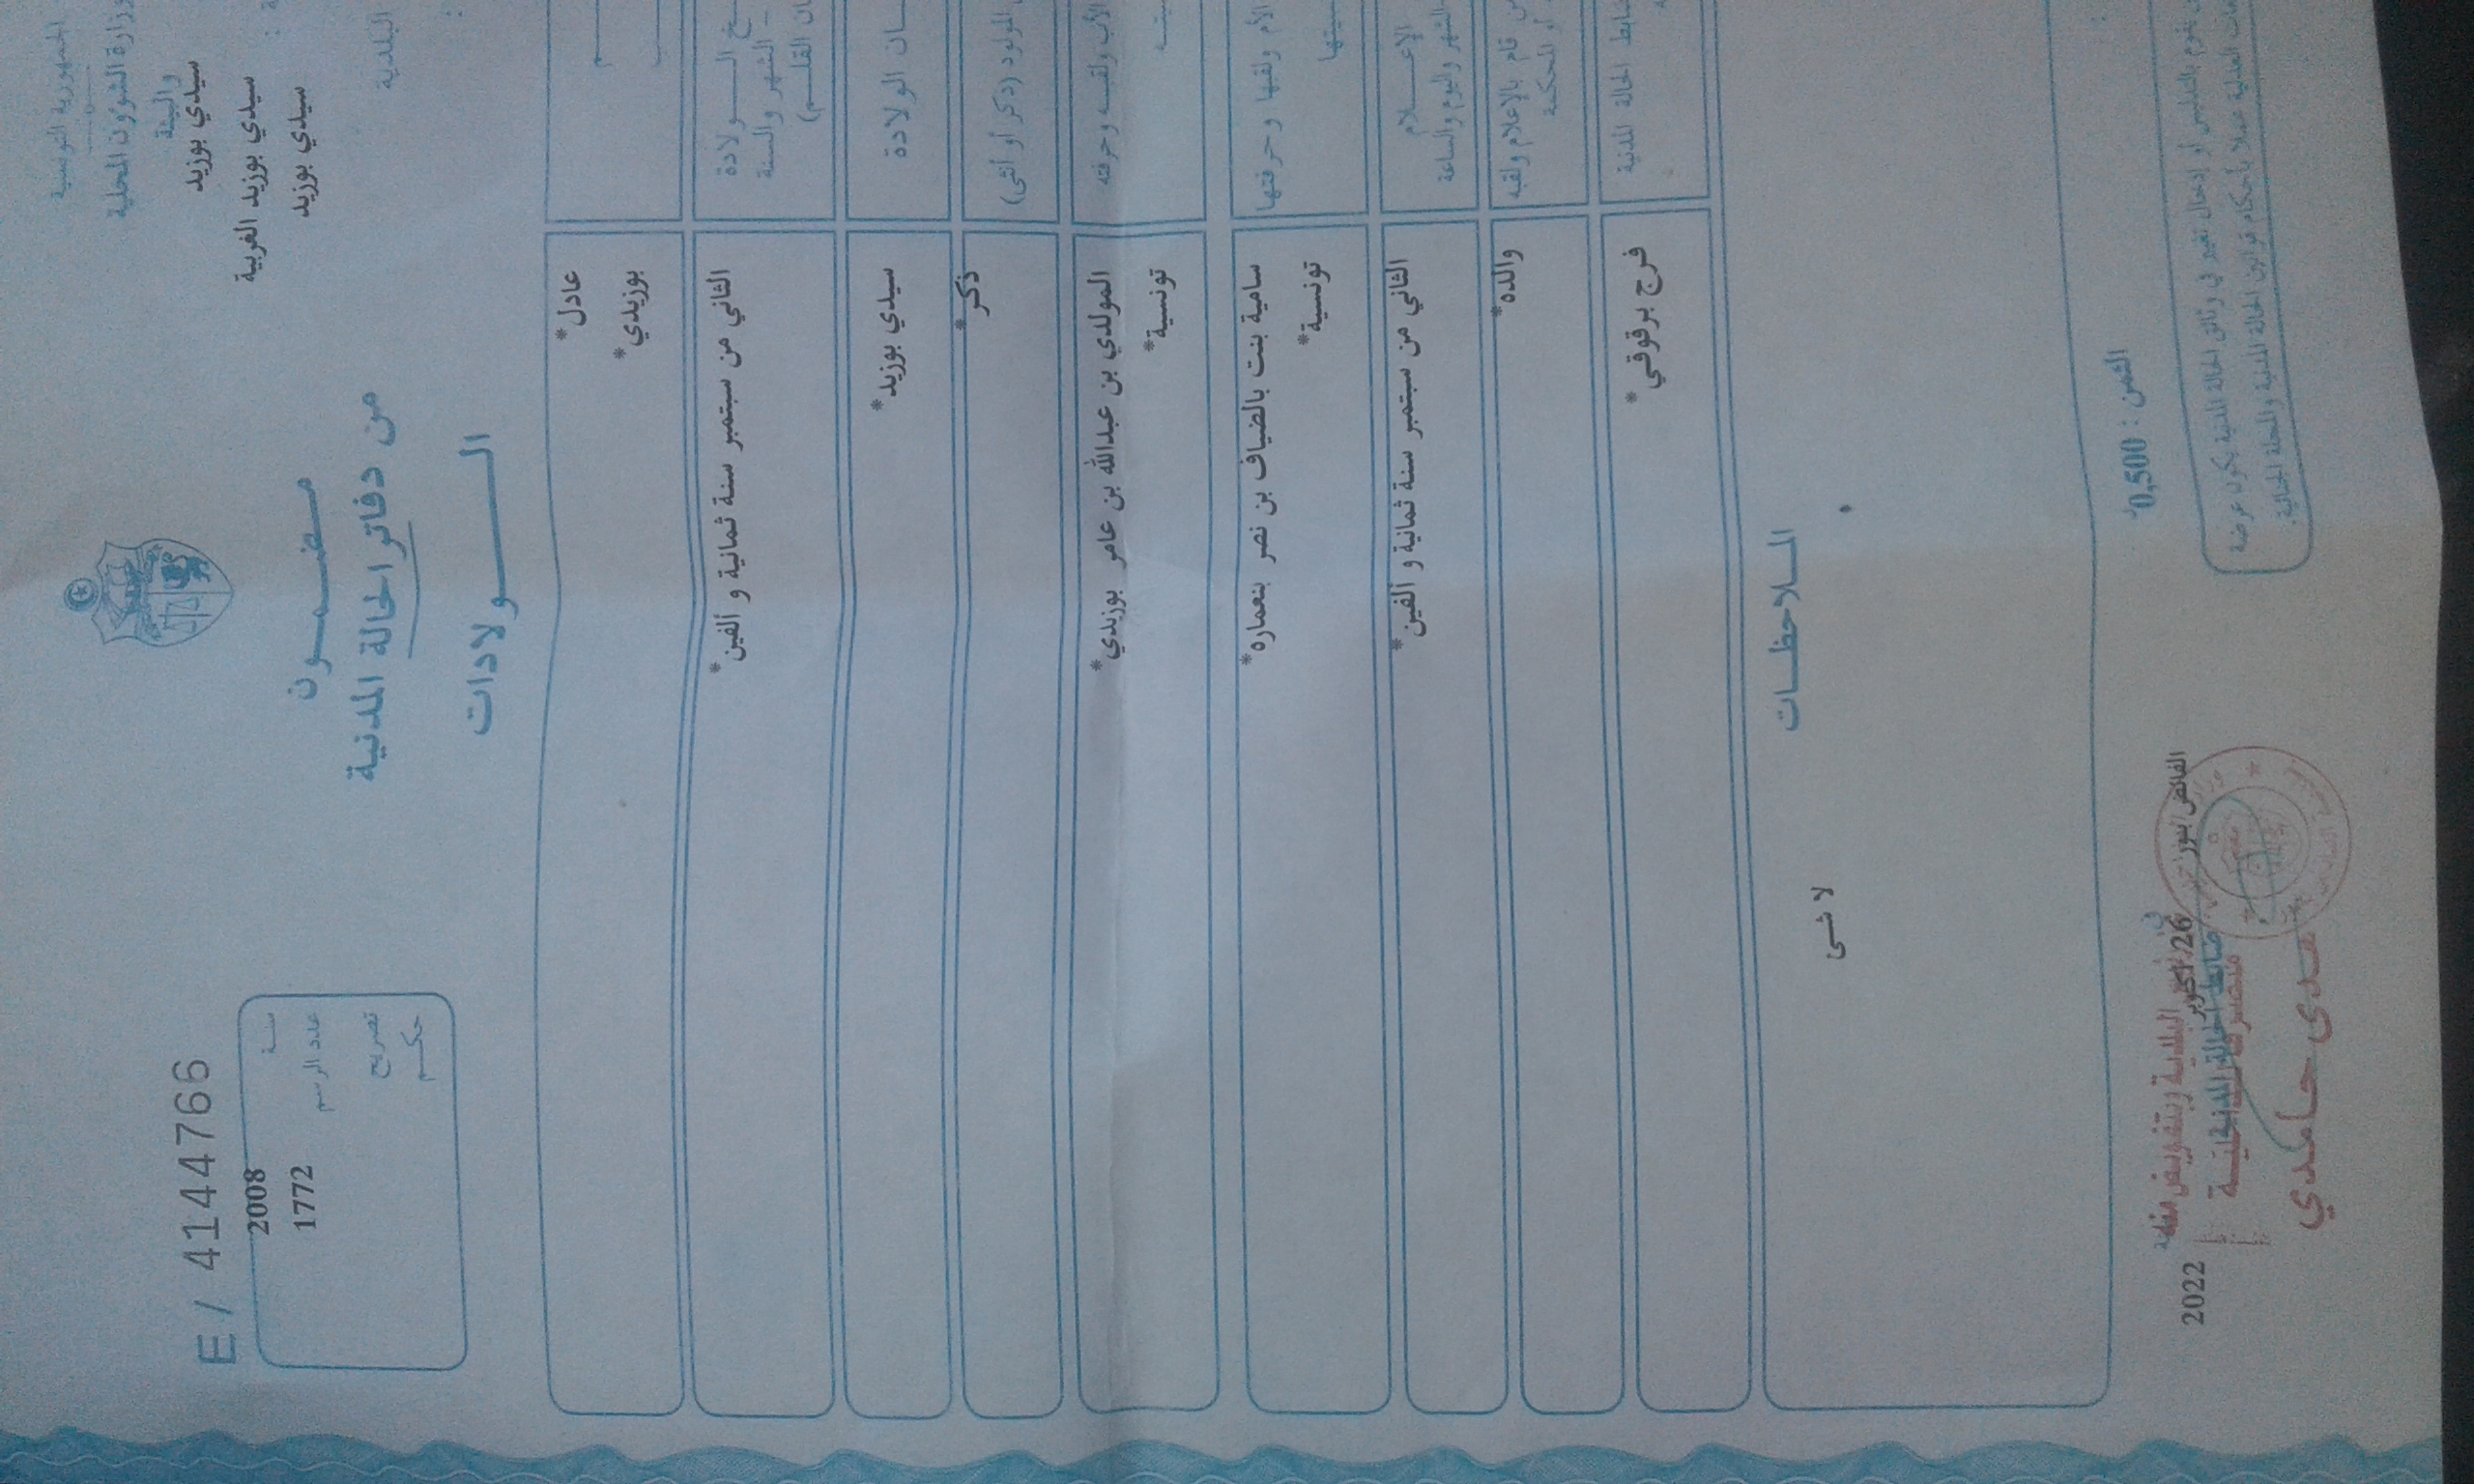 الجمهورية التونسية
وزارة الشؤون المحلية
والبيئة
سيدي بوزيد
سيدي بوزيد الغربية
سيدي بوزيد
البلدية :
E / 4144766
سنة 2008
عدد الرسم 1772
تصريح
حكم
مضمون
من دفاتر الحالة المدنية
الولادات
عادل*
بوزيدي*
الولادة
الشهر والسنة
القلم)
الثاني من سبتمبر سنة ثمانية و ألفين*
الولادة
سيدي بوزيد*
المولود (ذكر أو أنثى)
ذكر*
الأب ولقبه وحرفته
المولدي بن عبدالله بن عامر بوزيدي*
تونسية*
الأم ولقبها وحرفتها
سامية بنت بالضياف بن نصر بنعماره*
تونسية*
الإعلام
الشهر واليوم والساعة
الثاني من سبتمبر سنة ثمانية و ألفين*
قام بالإعلام ولقبه
أو المحكمة
والده*
ضابط الحالة المدنية
فرج برقوقي*
الملاحظات
لا شىء
الثمن : 0,500
يقوم بالتدليس أو إدخال تغيير في وثائق الحالة المدنية يكون عرضة
العدلية عملا بأحكام قوانين الحالة المدنية والمجلة الجنائية.
في 26 أكتوبر 2022
ضابط الحالة المدنية
حامدي